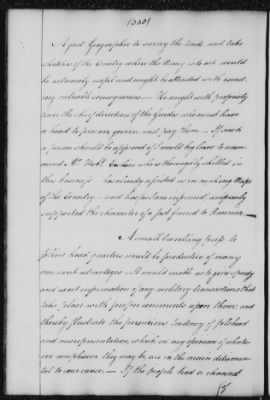 A good Geographer to survey the roads and take
sketches of the Country where the Army is to act would
be extremely useful and might be attended with exceed
ing valuable consequences — He might with propriety
have the chief direction of the Guides who must have
a head to procure govern and pay them — If such
a person should be approved of I would beg leave to recom
mend Mr. Robt. Erskine who is thoroughly skilled in
this business has already assisted us in making Maps
of the Country — and has, as I am informed, uniformly
supported the character of a fast friend to America. —
A small travelling press to
follow head quarters would be productive of many
eminent advantages. It would enable us to give speedy
and exact information of any military transactions that
take place with proper comments upon them; and
thereby frustrate the pernicious tendency of falsehood
and misrepresentation, which in my opinion of whate
ver complexion they may be, are in the main detrimen
tal to our cause. — If the people had a channel